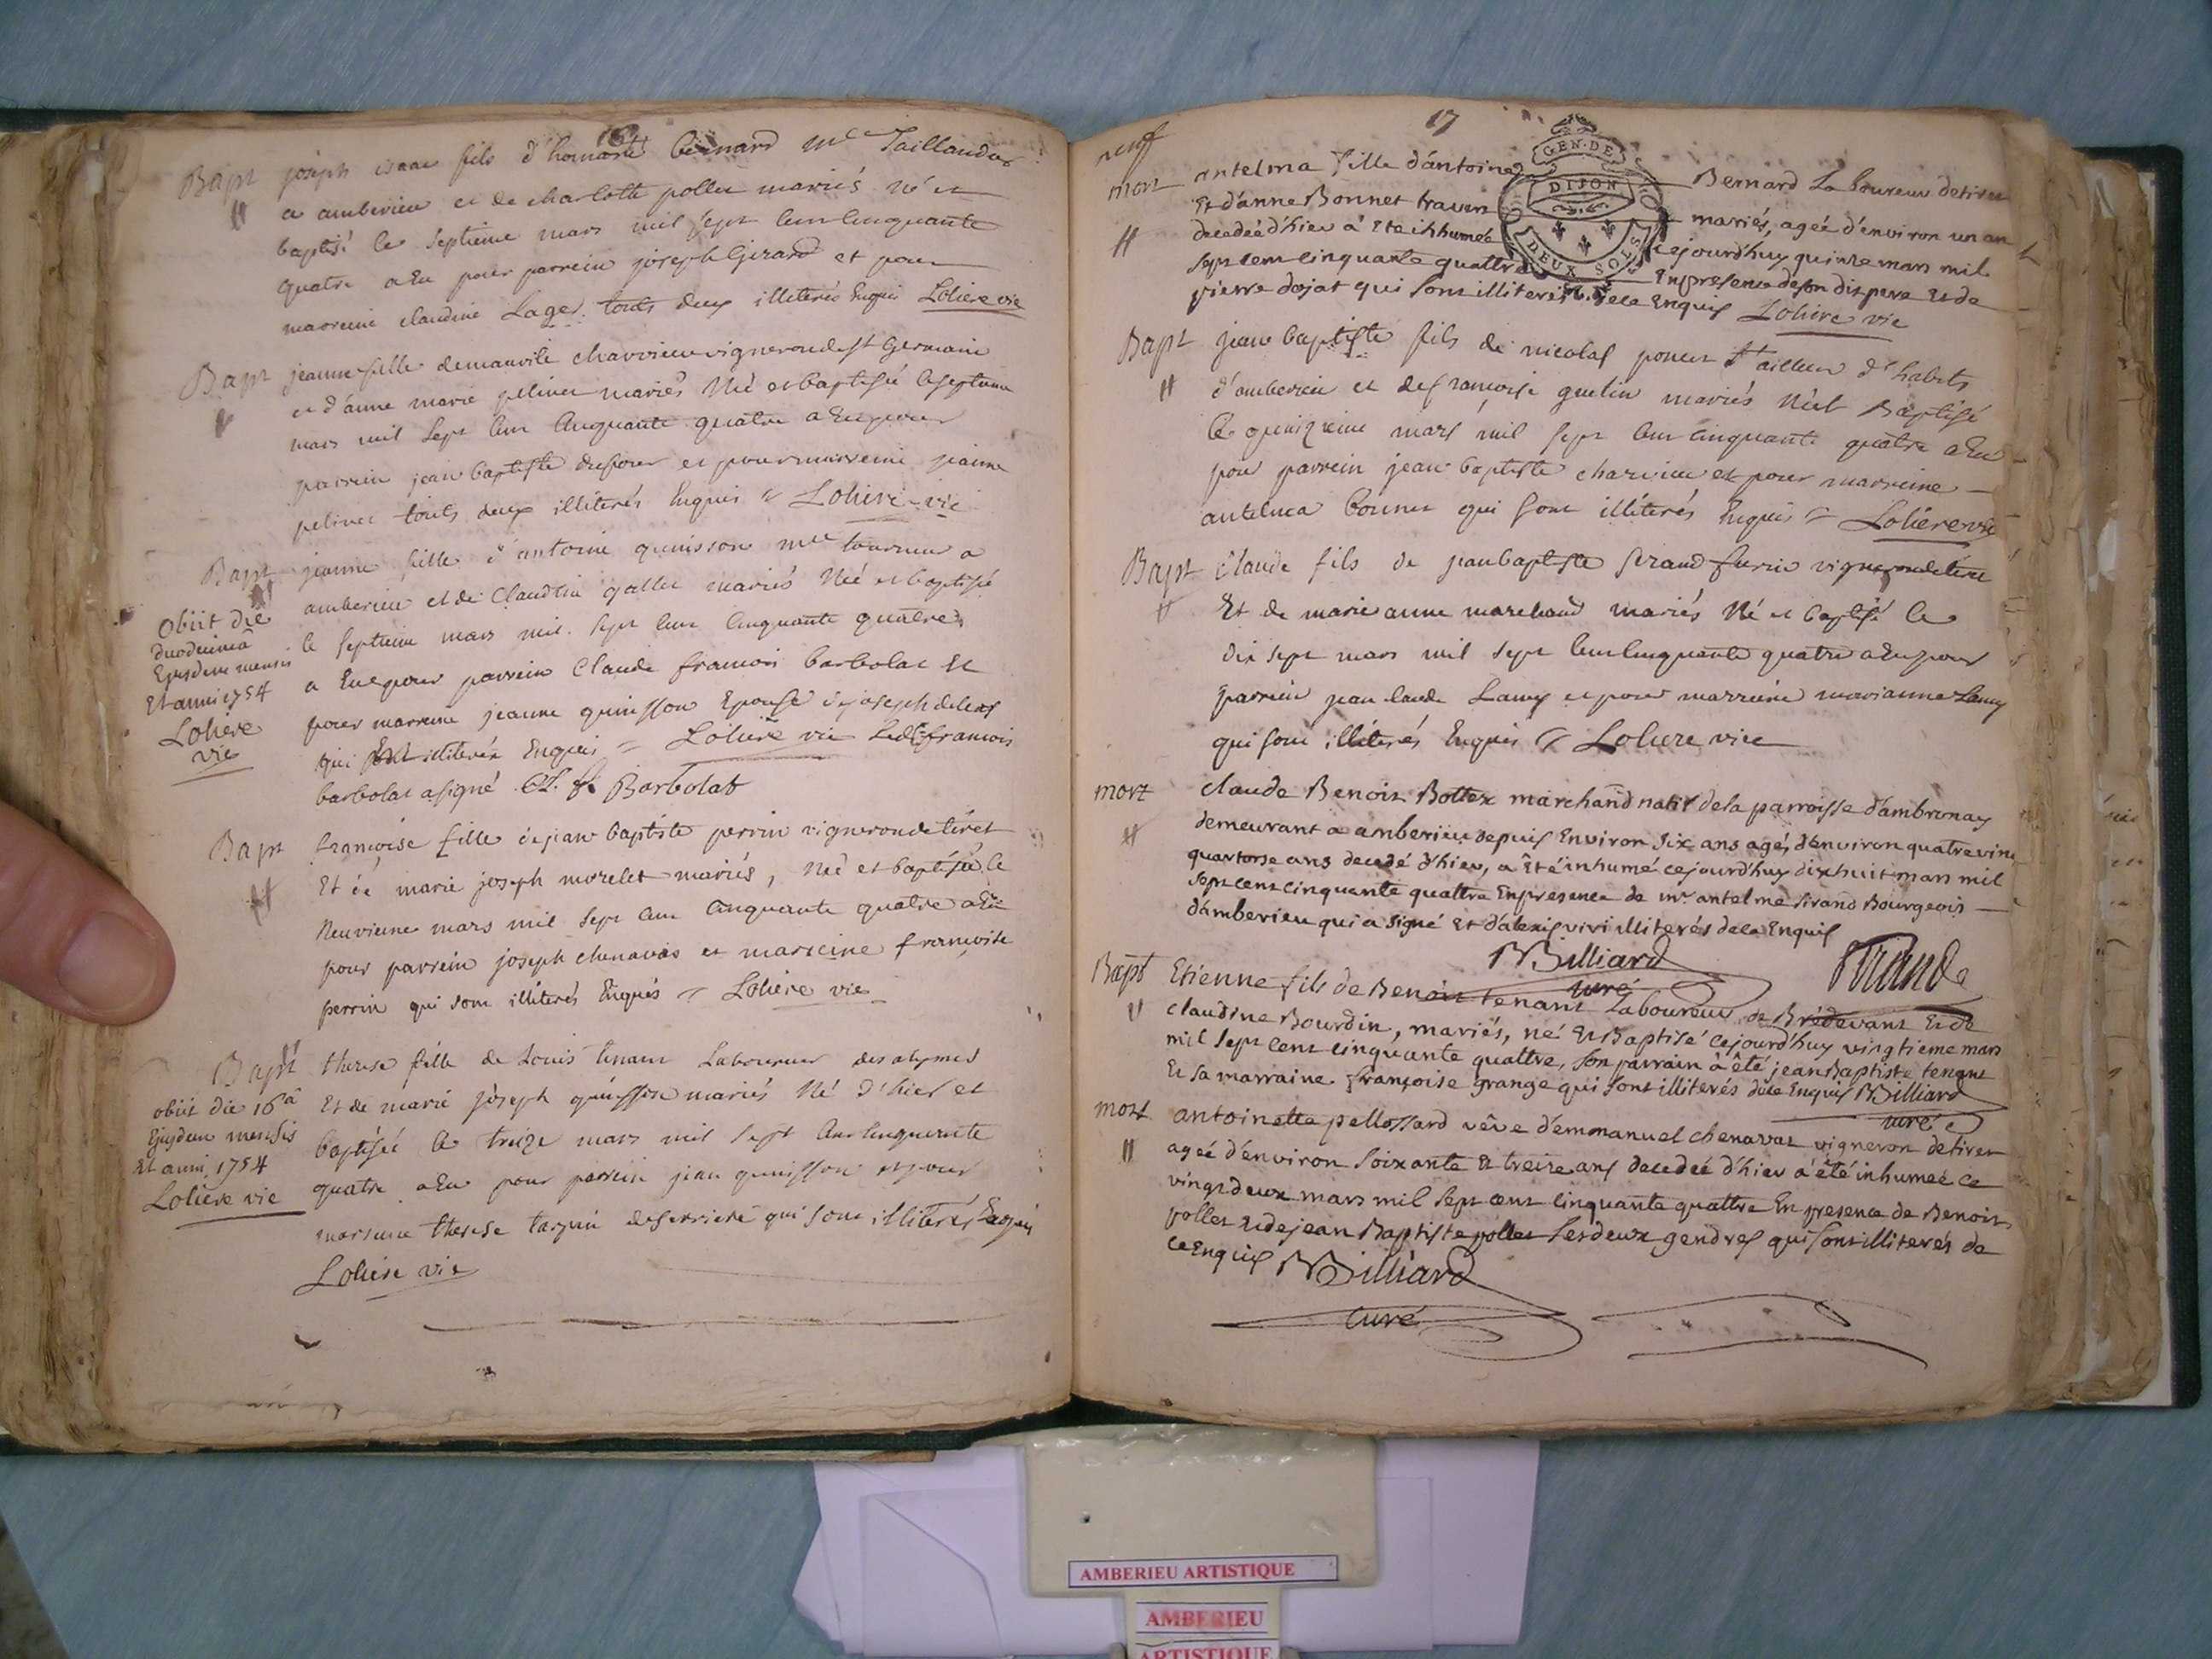 16
Bapt joseph isaac fils d'honoré bernard me Taillandier
a amberieu et de charlotte pollet mariés né et
baptisé le septieme mars mil sept cent cinquante
quatre a Eu pour parrein joseph Girard et pour
marreine claudine Lager touts deux illiterés Enquis Loliere vie
Bapt jeanne fille demanville charvieu vigneron de st Germain
et d'anne marie pelinet mariés Né et baptisée le septieme
mars mil sept cent cinquante quatre a Eu pour
parrein jean baptiste dufour et pour marreine jeanne
pelinet touts deux illiterés Enquis Loliere vie
Bapt jeanne fille d'antoine quinisson me tourneur a
amberieu et de Claudin gallet mariés Né et baptisé
le septieme mars mil sept cent cinquante quatre
a Eue pour parrein Claude francois barbolat Et
pour marreine jeanne quinisson Epouse de joseph
qui illiterés Enquis Loliere vie Led francois
barbolat a signé Cl. f. Barbolat
obiit die
duodecimâ
Ejusdem mensis
Et anni 1754
Loliere
vie
Bapt francoise fille de jean baptiste perrin vigneron de tiret
Et de marie joseph morelet mariés, Né et baptisée le
Neuvieme mars mil sept cent cinquante quatre a Eu
pour parrein joseph chenavas et marreine francoise
perrin qui sont illiterés Enquis Loliere vie
Bapt therese fille de Louis tenant Laboureur des alymes
Et de marie joseph quinisson mariés Né d'hier et
baptisée le treize mars mil sept cent cinquante
quatre a Eu pour parrein jean quinisson et pour
marreine therese tarpin qui sont illiterés Enquis
Loliere vie
obiit die 16â
Ejusdem mensis
Et anni 1754
Loliere vie
neuf
17
GEN. DE
DIJON
DEUX SOLS
mort antelma fille d'antoine Bernard Laboureur de tiret
Et d'anne Bonnet mariés, ageé d'environ un an
decedeé d'hier à Eté inhumeé cejourd'huy quinze mars mil
sept cent cinquante quattre En presence de son dit pere Et de
pierre dojat qui sont illiterés de ce Enquis Loliere vie
Bapt jean baptiste fils de nicolas poncet tailleur d'habits
d'amberieu et de francoise guelin mariés Né et Baptisé
le quinzieme mars mil sept cent cinquante quatre a Eu
pour parrein jean baptiste charvieu et pour marreine
antelma bonnet qui sont illiterés Enquis Loliere vie
Bapt Claude fils de jean baptiste sirand vigneron de tiret
Et de marie anne marchand mariés Né et baptisé le
dix sept mars mil sept cent cinquante quatre a Eu pour
parrein jean claude Lamy et pour marreine marianne Lamy
qui sont illiterés Enquis Loliere vie
mort claude Benoit Bottex marchand natif de la parroisse d'ambronay
demeurant a amberieu depuis Environ six ans agé d'environ quatrevint
quartorse ans decedé d'hier, a Eté inhumé cejourd'huy dixhuit mars mil
sept cent cinquante quattre En presence de mr antelme sirand Bourgeois
d'amberieu qui a signé Et d'alexis vivi illiterés de ce Enquis
Billiard
curé
Sirand
Bapt Etienne fils de Benoit tenant Laboureur de Brédevant Et de
claudine Bourdin, mariés, né Et Baptisé cejourd'huy vingtieme mars
mil sept cent cinquante quattre, son parrain à êté jean Baptiste tenant
Et sa marraine françoise grange qui sont illiterés de ce Enquis Billiard
curé
mort antoinette pellossard vêve d'emmanuel chenavat vigneron de tiret
ageé d'environ soixante Et treize ans decedeé d'hier a êté inhumeé ce
vingtdeux mars mil sept cent cinquante quattre En presence de Benoit
pollet Et de jean Baptiste pollet ses deux gendres qui sont illiterés de
ce Enquis Billiard
curé
AMBERIEU ARTISTIQUE
AMBERIEU
ARTISTIQUE